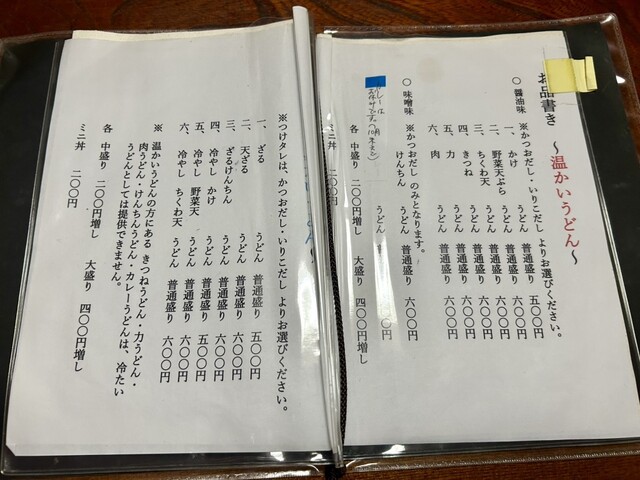 お品書き ～温かいうどん～
○ 醤油味 ※かつおだし・いりこだし よりお選びください。
一、かけ うどん 普通盛り 五〇〇円
二、野菜天ぷら うどん 普通盛り 六〇〇円
三、ちくわ天 うどん 普通盛り 六〇〇円
四、きつね うどん 普通盛り 六〇〇円
五、力 うどん 普通盛り 六〇〇円
六、肉 うどん 普通盛り 六〇〇円
○ 味噌味 ※かつおだし のみとなります。
けんちん うどん 普通盛り 六〇〇円
カレーは
うどん
各 中盛り 二〇〇円増し 大盛り 四〇〇円増し
ミニ丼 二〇〇円
※つけタレは、かつおだし・いりこだし よりお選びください。
一、ざる うどん 普通盛り 五〇〇円
二、天ざる うどん 普通盛り 六〇〇円
三、ざるけんちん うどん 普通盛り 六〇〇円
四、冷やし かけ うどん 普通盛り 五〇〇円
五、冷やし 野菜天 うどん 普通盛り 六〇〇円
六、冷やし ちくわ天 うどん 普通盛り 六〇〇円
※ 温かいうどんの方にある きつねうどん・力うどん・
肉うどん・けんちんうどん・カレーうどんは、冷たい
うどんとしては提供できません。
各 中盛り 二〇〇円増し 大盛り 四〇〇円増し
ミニ丼 二〇〇円